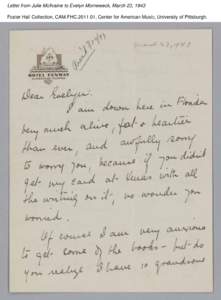 Letter from Julie McIlvaine to Evelyn Morneweck, March 23, 1943
Foster Hall Collection, CAM.FHC.2011.01, Center for American Music, University of Pittsburgh.
March 23, 1943
HOTEL FENWAY
Dear Evelyn:
I am down here in Florida
very much alive, fat & heartier
than ever, and awfully sorry
to worry you, because if you didn't
get my card at with all
the writing on it, no wonder you
worried.
Of course I am very anxious
to get some of the books - but do
you realize I have 10 grandsons